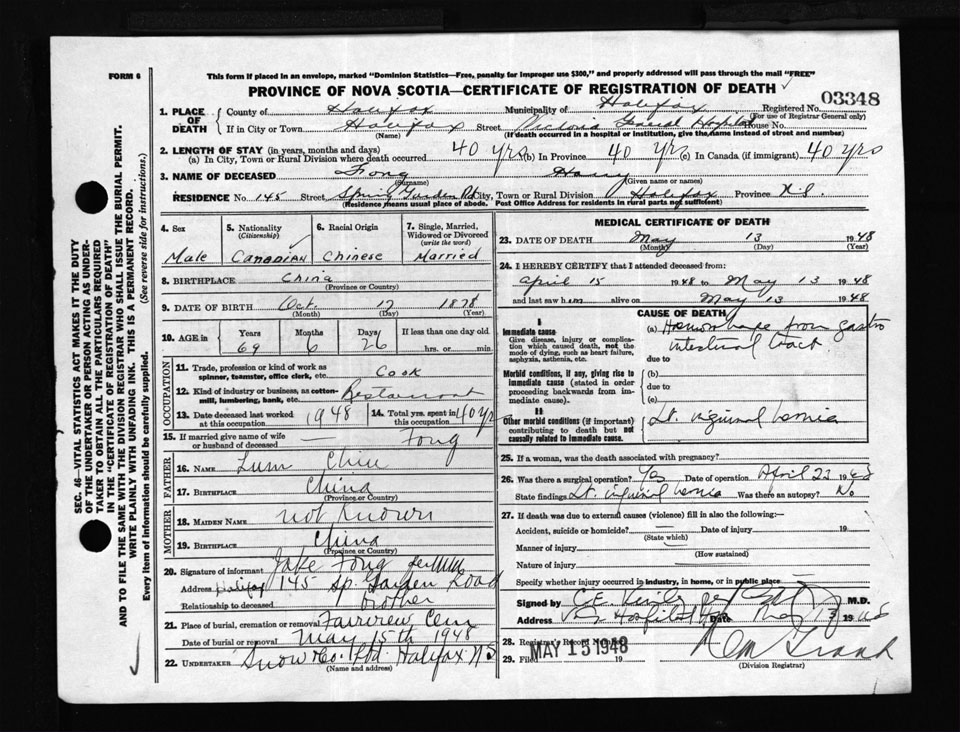 FORM 6
This form if placed in an envelope, marked "Dominion Statistics—Free, penalty for improper use $300," and properly addressed will pass through the mail "FREE"
PROVINCE OF NOVA SCOTIA—CERTIFICATE OF REGISTRATION OF DEATH
03348
1. PLACE OF DEATH County of Halifax Municipality of Halifax Registered No.
(For use of Registrar General only)
If in City or Town Halifax Street Victoria General Hospital House No.
(Name) (If death occurred in a hospital or institution, give the name instead of street and number)
2. LENGTH OF STAY (in years, months and days)
(a) In City, Town or Rural Division where death occurred 40 yrs (b) In Province 40 yrs (c) In Canada (if immigrant) 40 yrs
3. NAME OF DECEASED Fong Harry
(Surname) (Given name or names)
RESIDENCE No. 145 Street Spring Garden Rd City, Town or Rural Division Halifax Province N.S.
(Residence means usual place of abode. Post Office Address for residents in rural parts not sufficient)
SEC. 46—VITAL STATISTICS ACT MAKES IT THE DUTY
OF THE UNDERTAKER OR PERSON ACTING AS UNDER-
TAKER TO OBTAIN ALL THE PARTICULARS REQUIRED
IN THE "CERTIFICATE OF REGISTRATION OF DEATH"
AND TO FILE THE SAME WITH THE DIVISION REGISTRAR WHO SHALL ISSUE THE BURIAL PERMIT.
WRITE PLAINLY WITH UNFADING INK. THIS IS A PERMANENT RECORD.
Every item of information should be carefully supplied. (See reverse side for instructions.)
4. Sex 5. Nationality (Citizenship) 6. Racial Origin 7. Single, Married, Widowed or Divorced (write the word)
Male Canadian Chinese Married
8. BIRTHPLACE China
(Province or Country)
9. DATE OF BIRTH Oct. 17 1878
(Month) (Day) (Year)
10. AGE in Years Months Days If less than one day old
69 6 26 hrs. or min.
OCCUPATION
11. Trade, profession or kind of work as spinner, teamster, office clerk, etc. Cook
12. Kind of industry or business, as cotton-mill, lumbering, bank, etc. Restaurant
13. Date deceased last worked at this occupation 1948 14. Total yrs. spent in this occupation 40 yrs
15. If married give name of wife or husband of deceased — Fong
FATHER
16. NAME Lum Chiu
17. BIRTHPLACE China
(Province or Country)
MOTHER
18. MAIDEN NAME not known
19. BIRTHPLACE China
(Province or Country)
20. Signature of informant Jake Fong
Address Halifax 145 Sp. Garden Road
Relationship to deceased brother
21. Place of burial, cremation or removal Fairview Cem
Date of burial or removal May 15th 1948
22. UNDERTAKER Snow & Co. Ltd. Halifax N S
(Name and address)
MEDICAL CERTIFICATE OF DEATH
23. DATE OF DEATH May 13 1948
(Month) (Day) (Year)
24. I HEREBY CERTIFY that I attended deceased from:
April 15 1948 to May 13 1948
and last saw him alive on May 13 1948
CAUSE OF DEATH
I
Immediate cause
Give disease, injury or complication which caused death, not the mode of dying, such as heart failure, asphyxia, asthenia, etc.
(a) Hemorrhage from gastro
intestinal tract
due to
Morbid conditions, if any, giving rise to immediate cause (stated in order proceeding backwards from immediate cause).
(b)
due to
(c)
II
Other morbid conditions (if important) contributing to death but not causally related to immediate cause.
Lt. inguinal hernia
25. If a woman, was the death associated with pregnancy?
26. Was there a surgical operation? Yes Date of operation April 23 1948
State findings Lt. inguinal hernia Was there an autopsy? No
27. If death was due to external causes (violence) fill in also the following:—
Accident, suicide or homicide? Date of injury 19
(State which)
Manner of injury
(How sustained)
Nature of injury
Specify whether injury occurred in industry, in home, or in public place
Signed by C.E. M.D.
Address Hospital Date May 13 1948
28. Registrar's Record Number
29. Filed MAY 15 1948 19
(Division Registrar)